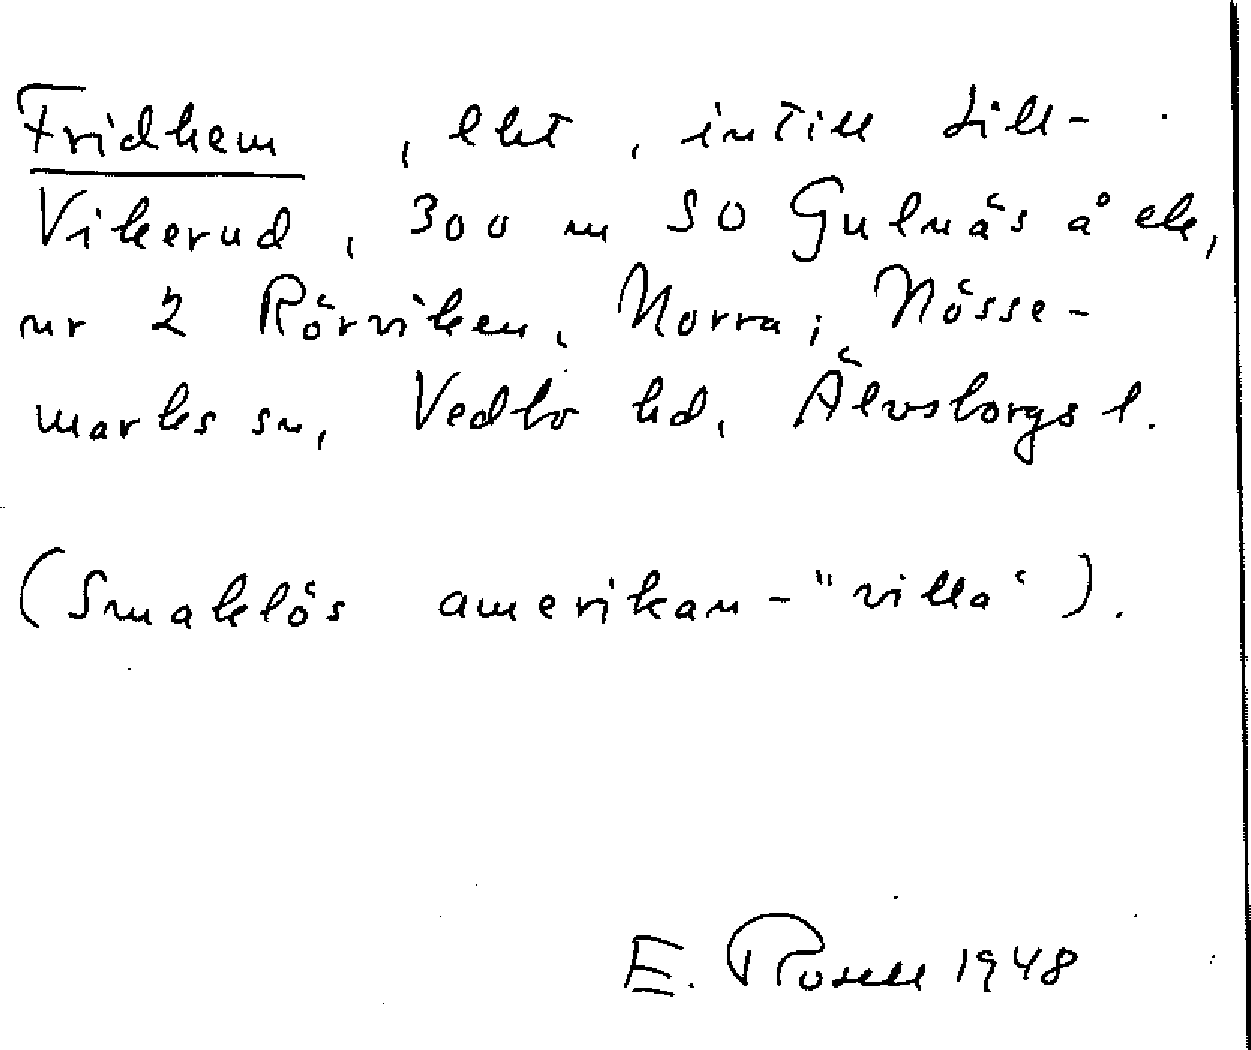 Fridhem , lht , intill Lill-
Vikerud , 300 m SO Gulnäs å ek,
nr 2 Rörviken, Norra; Nösse-
marks sn, Vedbo hd, Älvsborgs l.
(Smaklös amerikan-"villa").
E. Rosell 1948